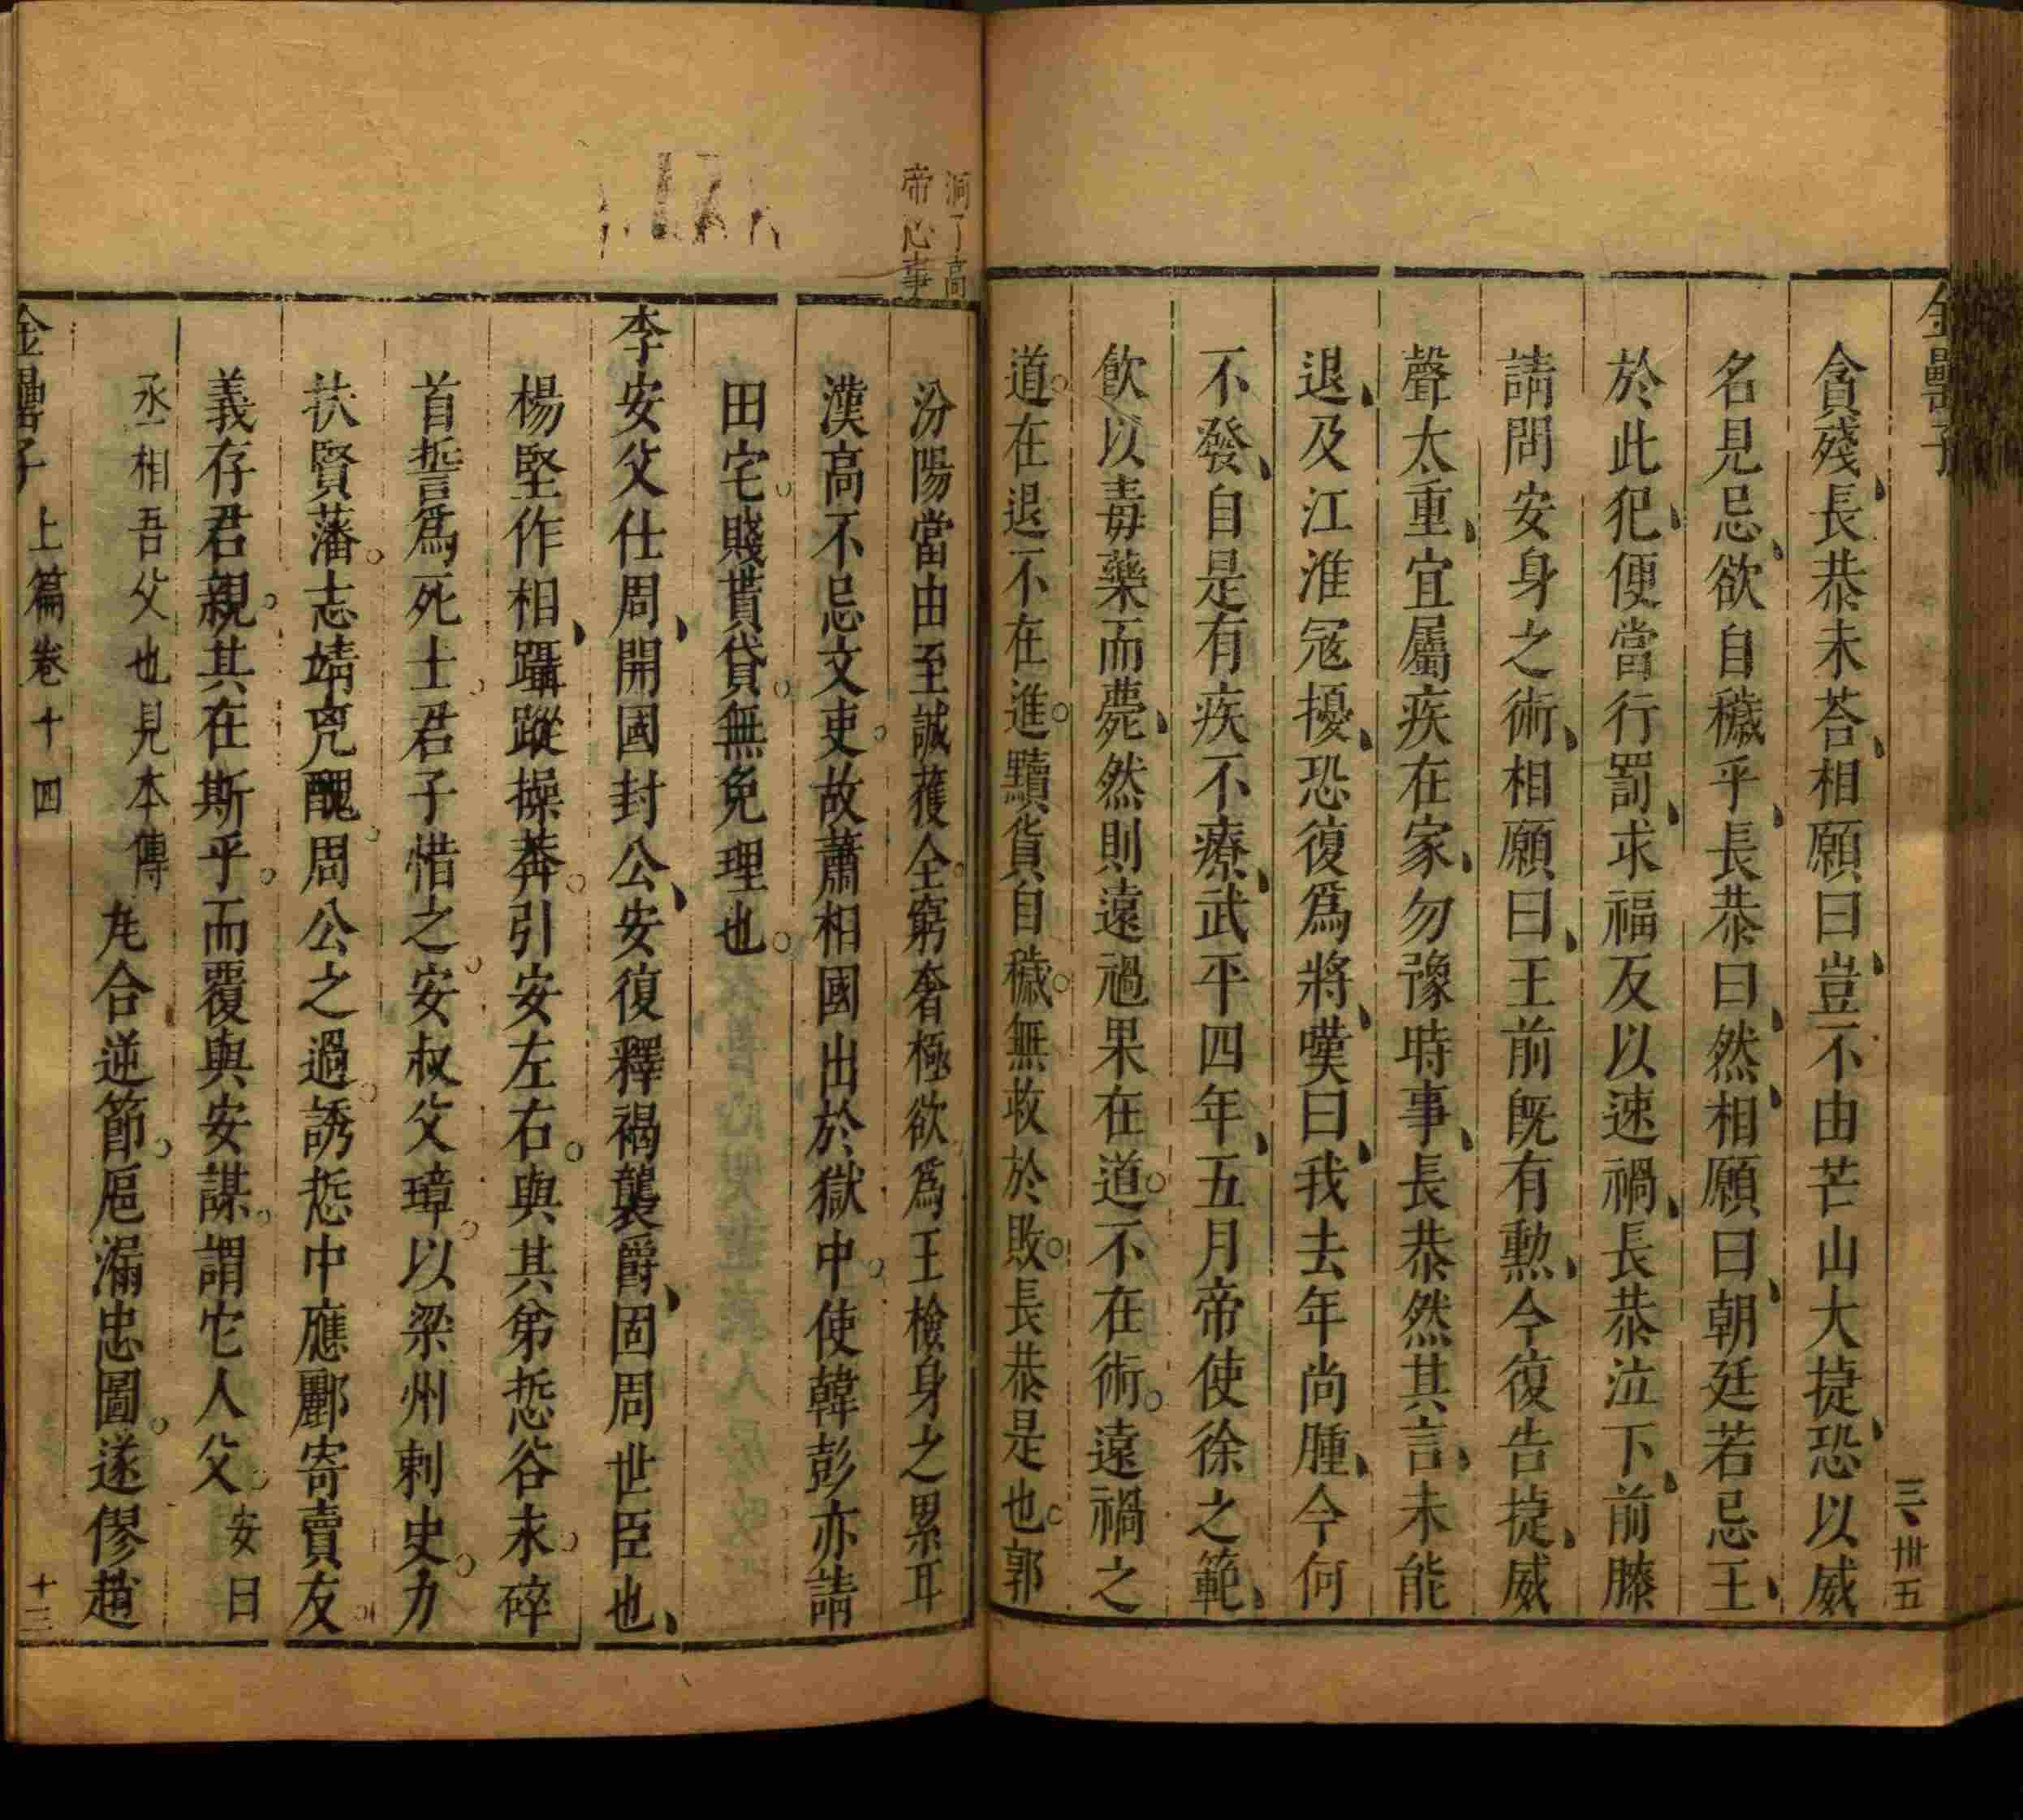 金罍子
三 卅五
貪殘長恭未荅相願曰豈不由芒山大捷恐以威
名見忌欲自穢乎長恭曰然相願曰朝廷若忌王
於此犯便當行罰求福反以速禍長恭泣下前膝
請問安身之術相願曰王前旣有勲今復告捷威
聲太重宜屬疾在家勿豫時事長恭然其言未能
退及江淮寇擾恐復爲將嘆曰我去年尚腫今何
不發自是有疾不療武平四年五月帝使徐之範
飲以毒藥而薨然則遠禍果在道不在術遠禍之
道在退不在進黷貨自穢無救於敗長恭是也郭
洞了高
帝心事
汾陽當由至誠獲全窮奢極欲爲王檢身之累耳
漢高不忌文吏故蕭相國出於獄中使韓彭亦請
田宅賤貰貸無免理也
李安父仕周開國封公安復釋褐襲爵固周世臣也
楊堅作相躡蹤操莾引安左右與其弟悊谷未碎
首誓爲死士君子惜之安叔父璋以梁州刺史力
扶賢藩志靖兇醜周公之過誘悊中應酈寄賣友
義存君親其在斯乎而覆與安謀謂它人父安曰
丞相吾父也見本傳尨合逆節巵漏忠圖遂僇趙
金罍子 上篇卷十四 十三